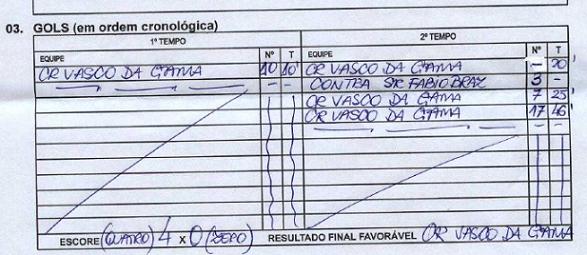 03. GOLS (em ordem cronológica)
1º TEMPO 2º TEMPO
EQUIPE Nº T EQUIPE Nº T
CR VASCO DA GAMA 10 10' CR VASCO DA GAMA - 20'
- - - - - CONTRA SR. FABIO BRAZ 3 -
CR VASCO DA GAMA 7 25'
CR VASCO DA GAMA 17 46'
- - - - -
ESCORE (QUATRO) 4 x 0 (ZERO) RESULTADO FINAL FAVORÁVEL CR VASCO DA GAMA